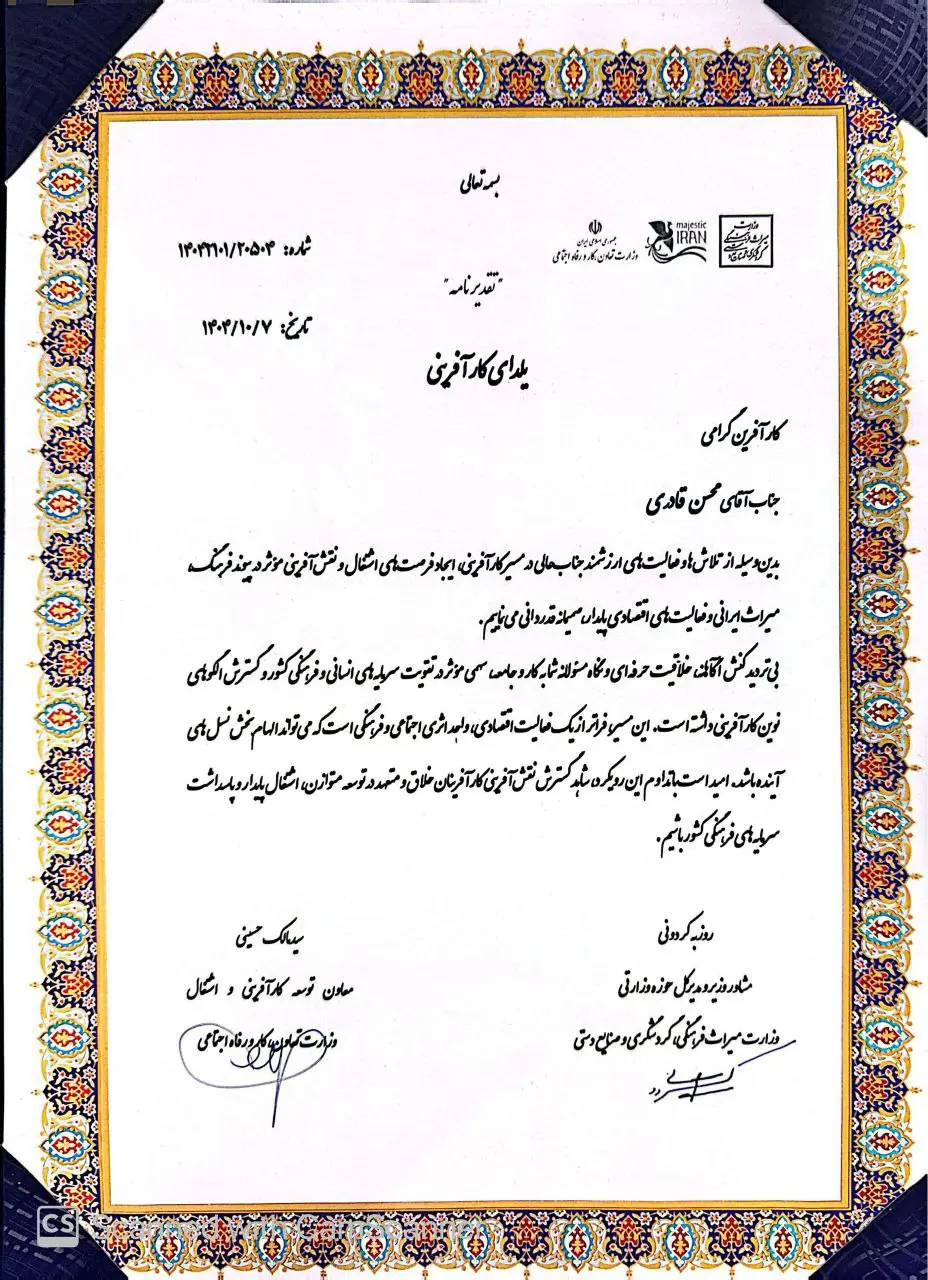 بسمه تعالی
وزارت میراث فرهنگی گردشگری و صنایع دستی
majestic
IRAN
جمهوری اسلامی ایران
وزارت تعاون، کار و رفاه اجتماعی
شماره: ۱۴۰۴۲۱۰۱/۲۰۵۰۴
"تقدیرنامه"
تاریخ: ۱۴۰۴/۱۰/۷
یلدای کارآفرینی
کارآفرین گرامی
جناب آقای محسن قادری
بدین‌وسیله از تلاش‌ها و فعالیت‌های ارزشمند جنابعالی در مسیر کارآفرینی، ایجاد فرصت‌های اشتغال و نقش‌آفرینی مؤثر در پیوند فرهنگ،
میراث ایرانی و فعالیت‌های اقتصادی پایدار، صمیمانه قدردانی می‌نماییم.
بی‌تردید کنش آگاهانه، خلاقیت حرفه‌ای و نگاه مسئولانه شما به کار و جامعه، سهمی مؤثر در تقویت سرمایه‌های انسانی و فرهنگی کشور و گسترش الگوهای
نوین کارآفرینی داشته است. این مسیر، فراتر از یک فعالیت اقتصادی، واجد اثری اجتماعی و فرهنگی است که می‌تواند الهام بخش نسل های
آینده باشد. امید است با تداوم این رویکرد، شاهد گسترش نقش‌آفرینی کارآفرینان خلاق و متعهد در توسعه متوازن، اشتغال پایدار و پاسداشت
سرمایه‌های فرهنگی کشور باشیم.
روزبه کردونی
مشاور وزیر و مدیرکل حوزه وزارتی
وزارت میراث فرهنگی، گردشگری و صنایع دستی
سیدمالک حسینی
معاون توسعه کارآفرینی و اشتغال
وزارت تعاون، کار و رفاه اجتماعی
CS Scanned with CamScanner